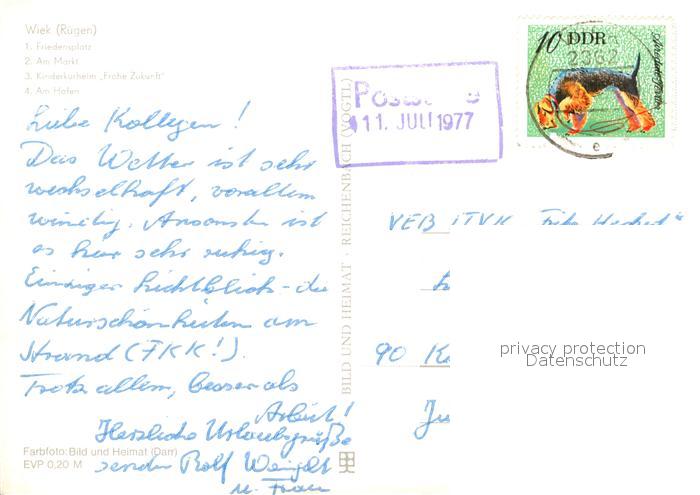 Wiek (Rügen)
1. Friedensplatz
2. Am Markt
3. Kinderkurheim „Frohe Zukunft"
4. Am Hafen
Liebe Kollegen!
Das Wetter ist sehr
wechselhaft, vorallem
windig. Ansonsten ist
es hier sehr ruhig.
Einziger Lichtblick - die
Naturschönheiten am
Strand (FKK!).
Trotz allem, besser als
Arbeit!
Herzliche Urlaubsgrüße
senden Rolf Weigelt
u. Frau
Farbfoto: Bild und Heimat (Darr)
EVP 0,20 M
BILD UND HEIMAT · REICHENBACH (VOGTL)
11. JULI 1977
10 DDR
2362
e
VEB ITVK "Fritz Heckert"
90 K
privacy protection
Datenschutz